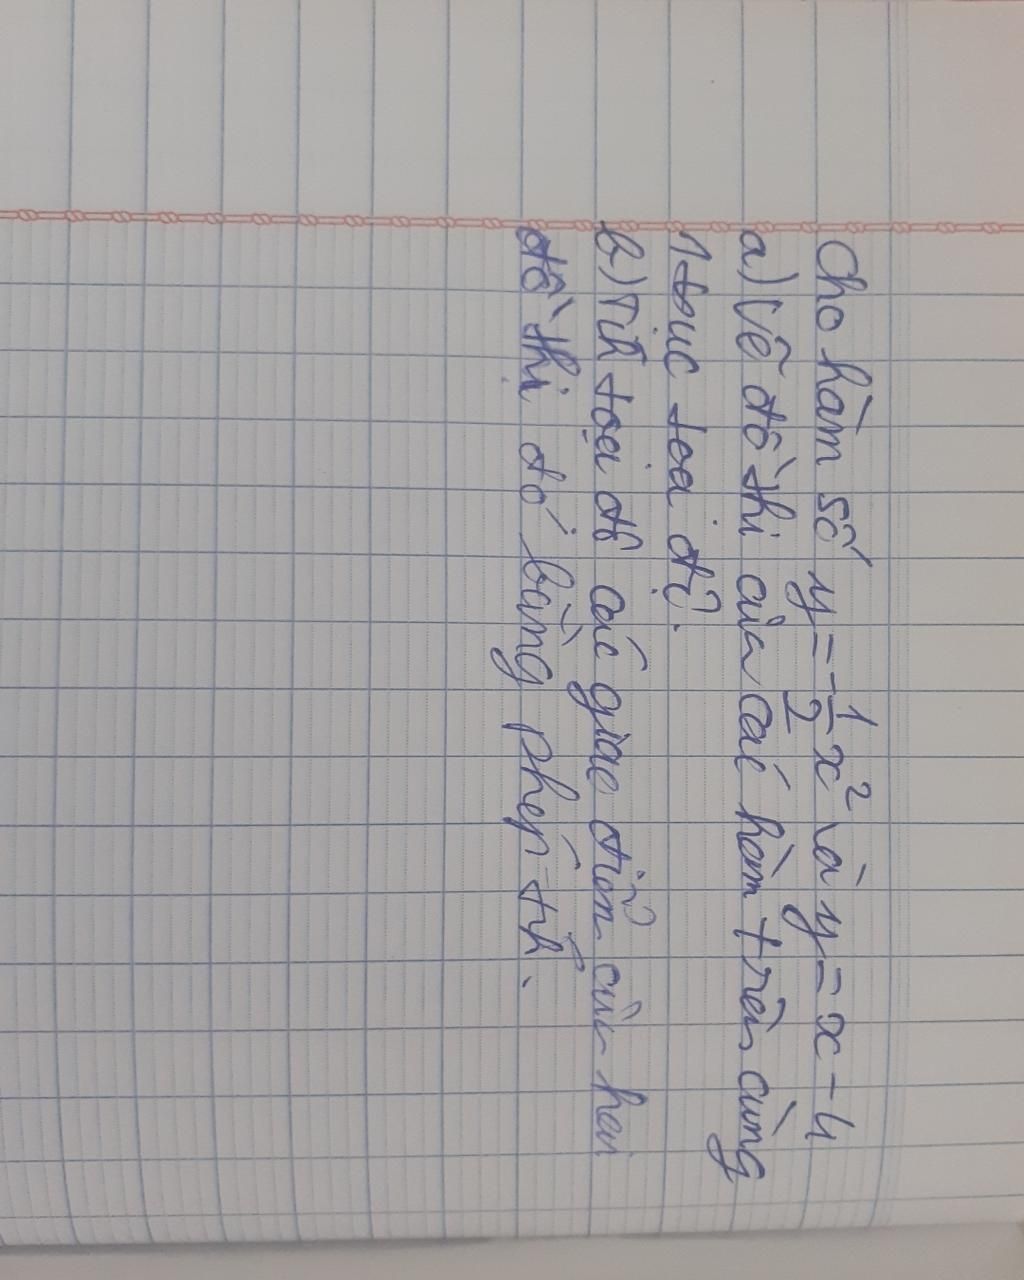 Cho hàm số y = -1/2 x² và y = x - 4
a) Vẽ đồ thị của các hàm trên cùng
1 trục tọa độ.
b) Tìh tọa độ các giao điểm của hai
đồ thị đó bằng phép tíh.